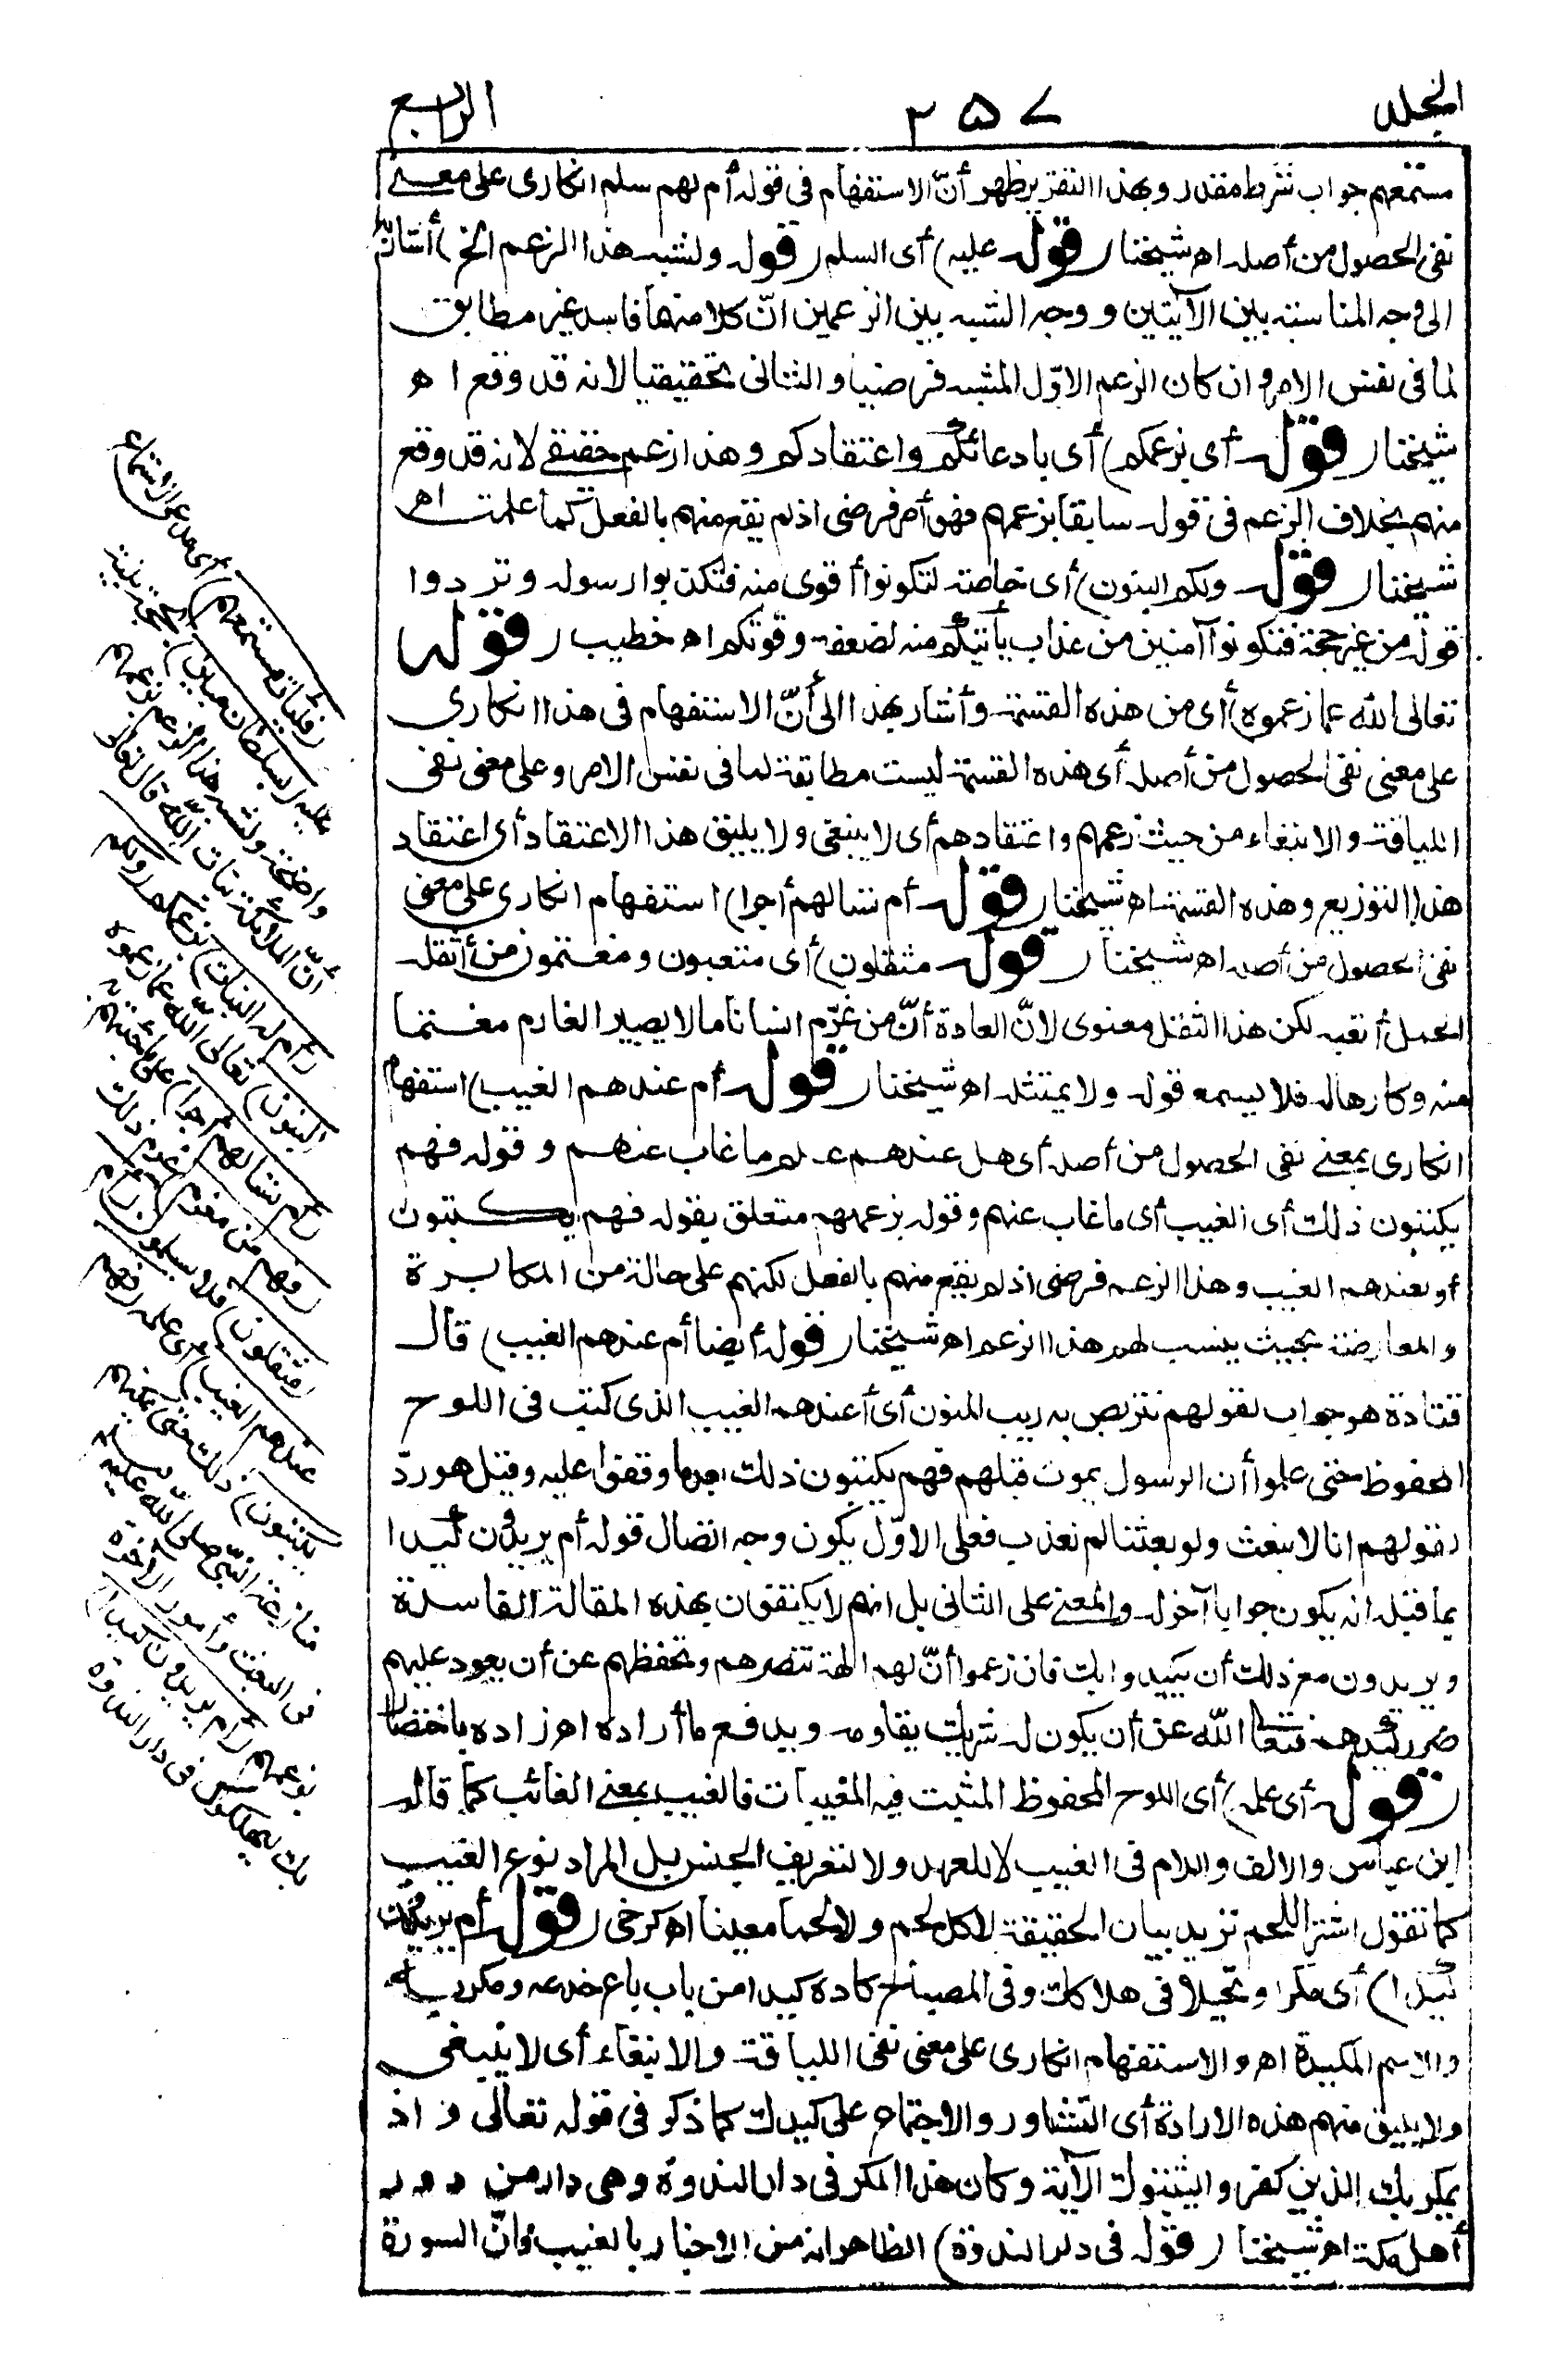 المجلد
٢٥٧
الرابع
مستمعهم جواب شرط مقدر وبهذا التقرير ظهر أنّ الاستفهام فى قوله أم لهم سلم انكارى على معنى
نفى الحصول من أصله اھ شيخنا (قوله عليه) أى السلم (قوله ولشبه هذا الزعم الخ) أشار به
الى وجه المناسبة بين الآيتين ووجه الشبه بين الزعمين انّ كلا منهما فاسد غير مطابق
لما فى نفس الامر وان كان الزعم الاوّل المشبه فرضيا والثانى تحقيقيا لانه قد وقع اھ
شيخنا (قوله أى بزعمكم) أى بادعائكم واعتقادكم وهذا زعم حقيقى لانه قد وقع
منهم بخلاف الزعم فى قوله سابقا بزعمهم فهو أمر فرضى اذ لم يقع منهم بالفعل كما علمت اھ
شيخنا (قوله ولكم البنون) أى خاصة لتكونوا أقوى منه فتكذبوا رسوله وتردوا
قوله من غير حجة فتكونوا آمنين من عذاب يأتيكم منه لضعفه وقوتكم اھ خطيب (قوله
تعالى الله عما زعموه) أى من هذه القسمة وأشار بهذا الى أنّ الاستفهام فى هذا انكارى
على معنى نفى الحصول من أصله أى هذه القسمة ليست مطابقة لما فى نفس الامر وعلى معنى نفى
اللياقة والانبغاء من حيث زعمهم واعتقادهم أى لا ينبغى ولا يليق هذا الاعتقاد أى اعتقاد
هذا التوزيع وهذه القسمة اھ شيخنا (قوله أم تسألهم أجرا) استفهام انكارى على معنى
نفى الحصول من أصله اھ شيخنا (قوله مثقلون) أى متعبون ومغتمون من أثقله
الحمل أتعبه لكن هذا الثقل معنوى لانّ العادة أنّ من غرّم انسانا مالا يصير الغارم مغتما
منه وكارها له فلا يسمع قوله ولا يمتثله اھ شيخنا (قوله أم عندهم الغيب) استفهام
انكارى بمعنى نفى الحصول من أصله أى هل عندهم علم ما غاب عنهم وقوله فهم
يكتبون ذلك أى الغيب أى ما غاب عنهم وقوله بزعمهم متعلق بقوله فهم يكتبون
أو بعندهم الغيب وهذا الزعم فرضى اذ لم يقع منهم بالفعل لكنهم على حالة من المكابرة
والمعارضة بحيث ينسب لهم هذا الزعم اھ شيخنا (قوله أيضا أم عندهم الغيب) قال
قتادة هو جواب لقولهم نتربص به ريب المنون أى أعندهم الغيب الذى كتب فى اللوح
المحفوظ حتى علموا أن الرسول يموت قبلهم فهم يكتبون ذلك بعدما وقفوا عليه وقيل هو ردّ
لقولهم انا لا نبعث ولو بعثنا لم نعذب فعلى الاوّل يكون وجه اتصال قوله أم يريدون كيدا
بما قبله انه يكون جوابا آخر له والمعنى على الثانى بل انهم لا يكتفون بهذه المقالة الفاسدة
ويريدون مع ذلك أن يكيدوا بك فان زعموا أنّ لهم الهة تنصرهم وتحفظهم عن أن يعود عليهم
ضرر كيدهم فتعالى الله عن أن يكون له شريك يقاومه ويدفع ما أراده اھ زاده باختصار
(قوله أى علمه) أى اللوح المحفوظ المثبت فيه المغيبات فالغيب بمعنى الغائب كما قاله
ابن عباس والالف واللام فى الغيب لا للعهد ولا لتعريف الجنس بل المراد نوع الغيب
كما تقول اشتر اللحم تريد بيان الحقيقة لا كل لحم ولا لحما معينا اھ كرخى (قوله أم يريدون
كيدا) أى مكرا وتحيلا فى هلاكك وفى المصباح كاده كيدا من باب باع خدعه ومكر به
والاسم المكيدة اھ والاستفهام انكارى على معنى نفى اللياقة والانبغاء أى لا ينبغى
ولا يليق منهم هذه الارادة أى التشاور والاجتماع على كيدك كما ذكر فى قوله تعالى واذ
يمكر بك الذين كفروا ليثبتوك الآية وكان هذا المكر فى دار الندوة وهى دار من دور
أهل مكة اھ شيخنا (قوله فى دار الندوة) الظاهر انه من الاخبار بالغيب فانّ السورة
(فليأت مستمعهم) أى مدعى الاستماع
عليه (بسلطان مبين) بحجة بينة
واضحة ولشبه هذا الزعم بزعمهم
أنّ الملائكة بنات الله قال تعالى
(أم له البنات) بزعمكم (ولكم
البنون) تعالى الله عما زعموه
(أم تسألهم أجرا) على ما جئتهم به
(فهم من مغرم) غرم ذلك
(مثقلون) فلا يسلمون (أم
عندهم الغيب) أى علمه (فهم
يكتبون) ذلك حتى يمكنهم
منازعة النبىّ صلى الله عليه وسلم
فى البعث وأمور الآخرة
بزعمهم (أم يريدون كيدا)
بك ليهلكوك فى دار الندوة